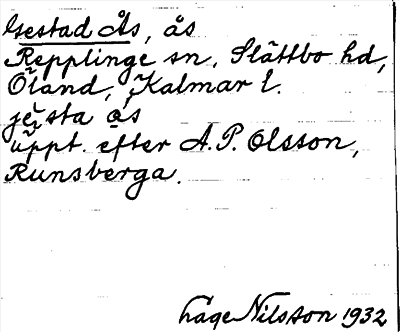 Gestad Ås, ås
Repplinge sn, Slättbo hd,
Öland, Kalmar l.
jesta ås
uppt. efter A. P. Olsson,
Runsberga.
Lage Nilsson 1932